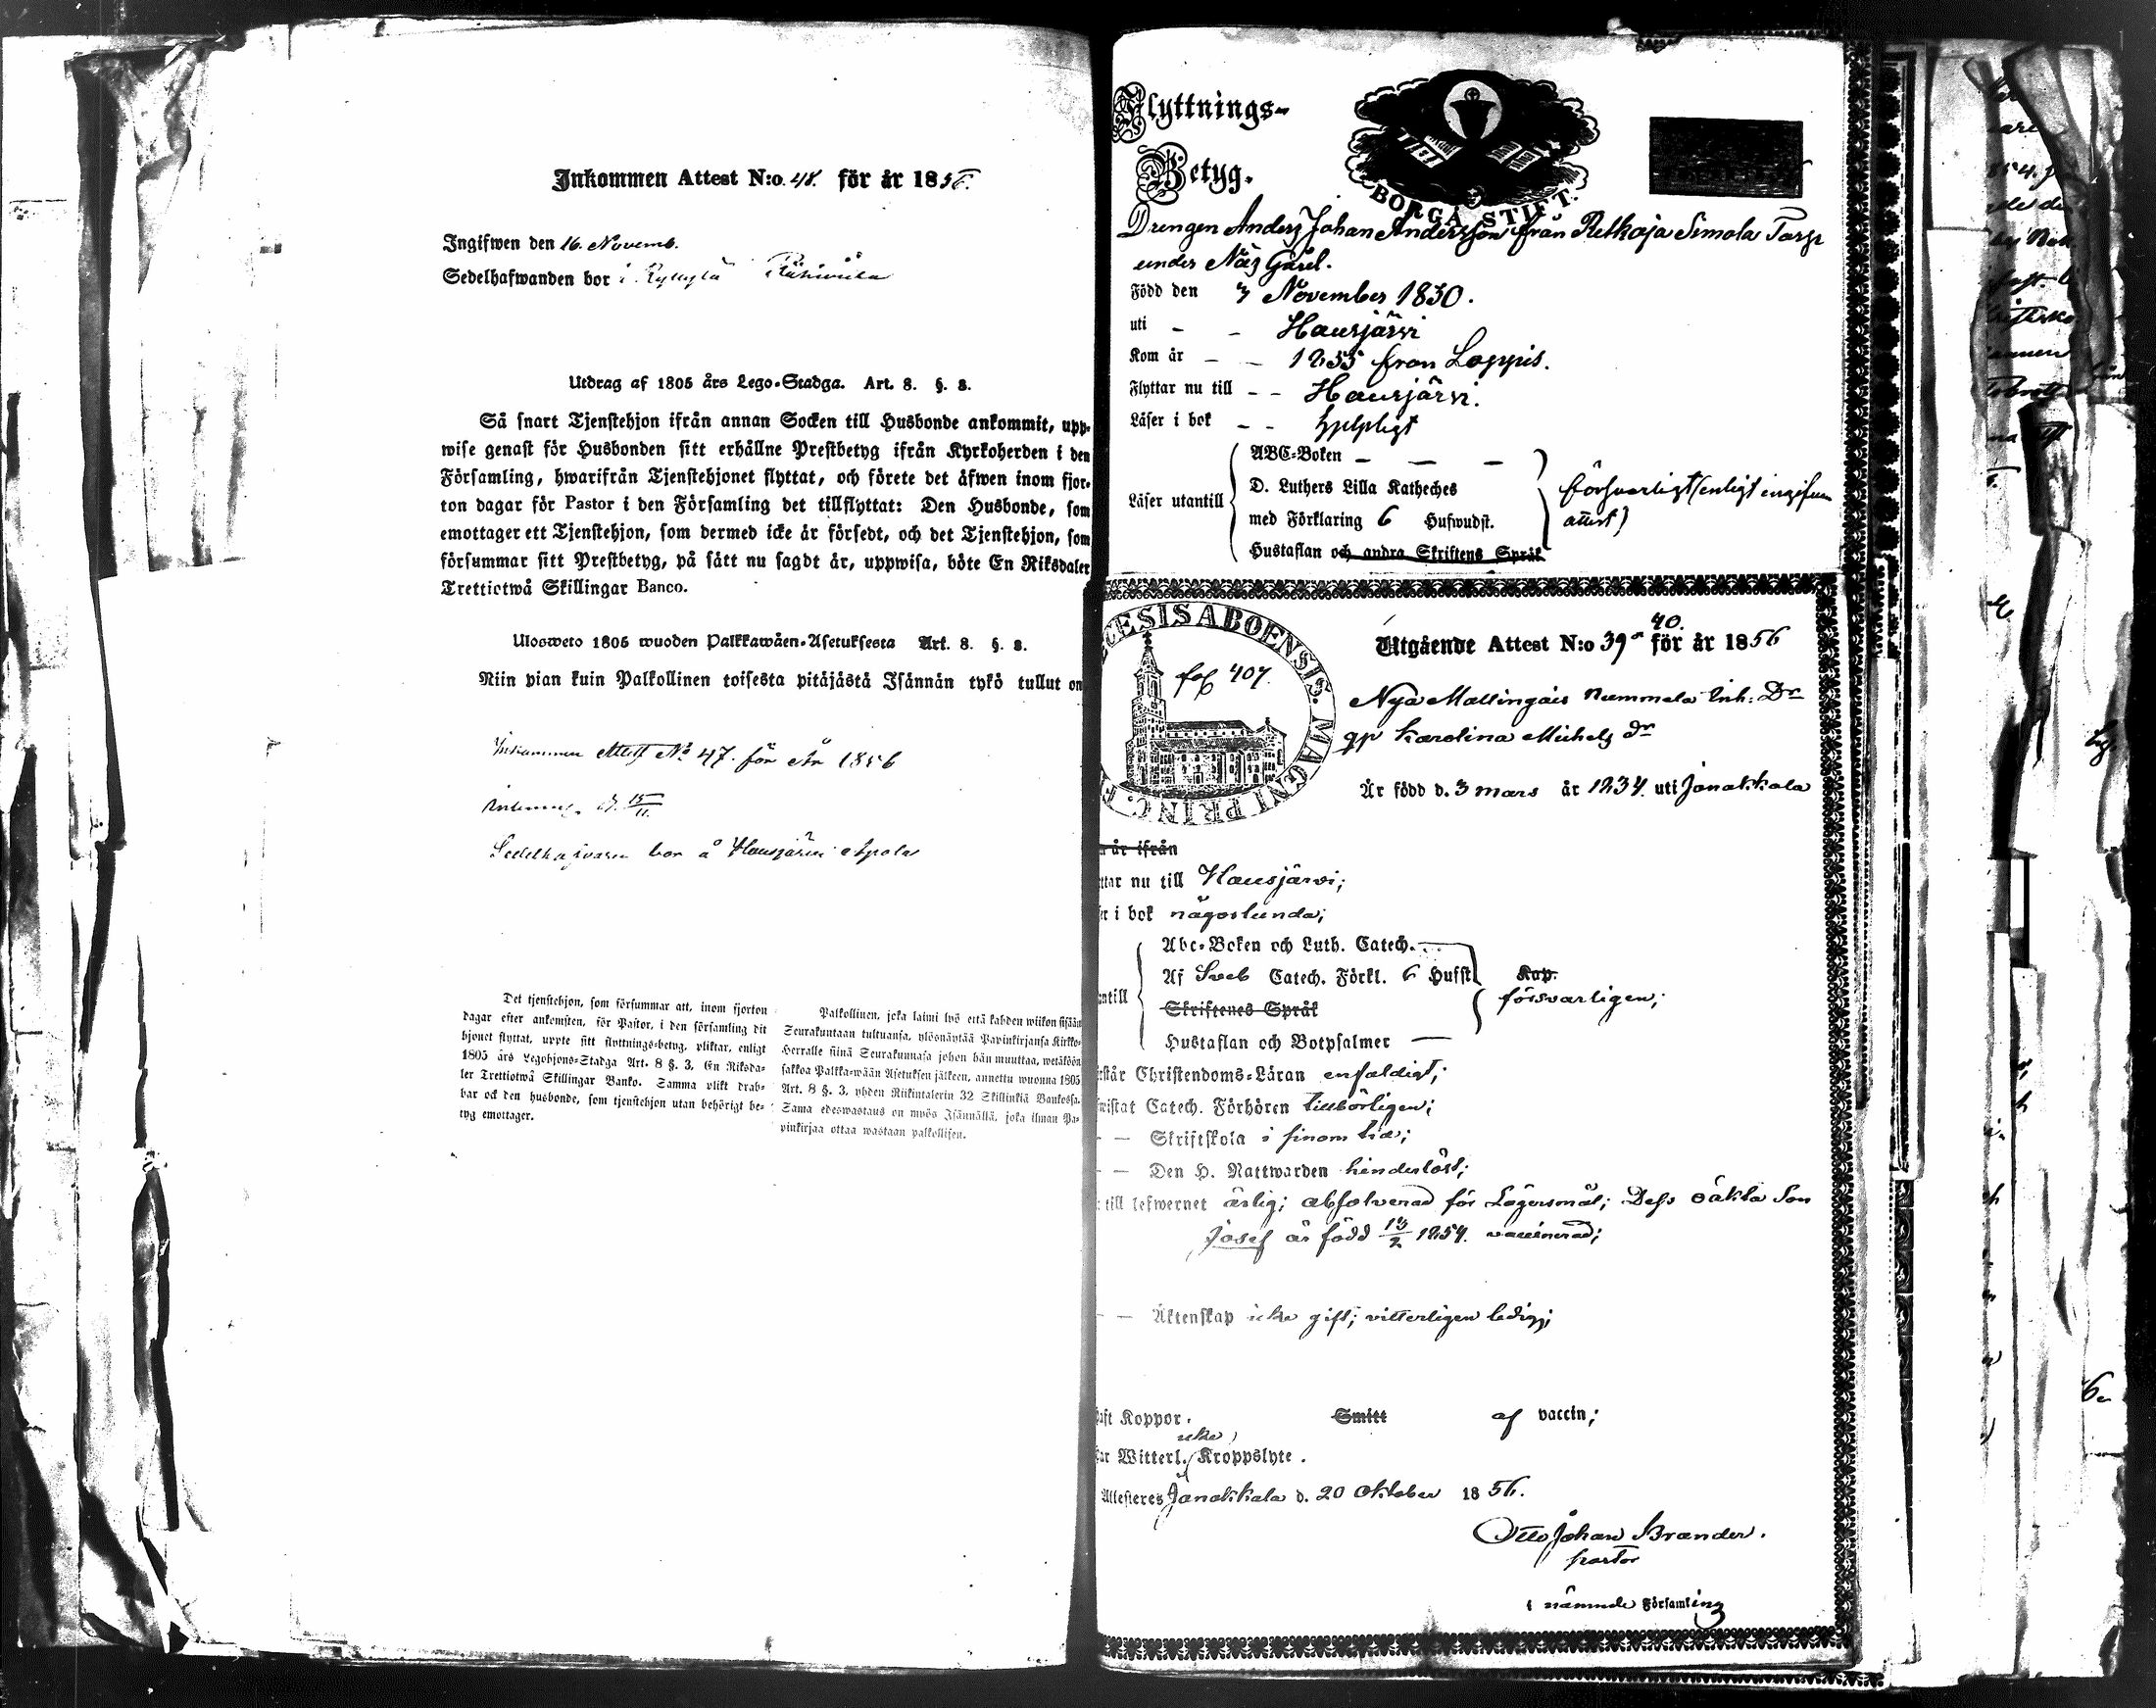 Inkommen Attest N:o 48. för år 1856.
Ingifwen den 16. Novemb.
Sedelhafwanden bor i
Utdrag af 1805 års Lego-Stadga. Art. 8. §. 3.
Så snart Tjenstehjon ifrån annan Socken till Husbonde ankommit, upp-
wise genast för Husbonden sitt erhållne Prestbetyg ifrån Kyrkoherden i den
Församling, hwarifrån Tjenstehjonet flyttat, och förete det äfwen inom fjor-
ton dagar för Pastor i den Församling det tillflyttat: Den Husbonde, som
emottager ett Tjenstehjon, som dermed icke är försedt, och det Tjenstehjon, som
försummar sitt Prestbetyg, på sätt nu sagdt är, uppwisa, böte En Riksdaler
Trettiotwå Skillingar Banco.
Ulosweto 1805 wuoden Palkkawäen-Asetuksesta Art. 8. §. 3.
Niin pian kuin Palkollinen toisesta pitäjästä Isännän tykö tullut on
Inkommen Attest No 47. för År 1856
d. 15/11.
Sedelhafvaren bor å Hausjärvi
Det tjenstehjon, som försummar att, inom fjorton
dagar efter ankomsten, för Pastor, i den församling dit
hjonet flyttat, uppte sitt flyttnings-betyg, pliktar, enligt
1805 års Legohjons-Stadga Art. 8 §. 3, En Riksda-
ler Trettiotwå Skillingar Banko. Samma plikt drab-
bar ock den husbonde, som tjenstehjon utan behörigt be-
tyg emottager.
Palkollinen, joka laimi lyö että kahden wiikon sisään
Seurakuntaan tultuansa, ylösnäyttää Papinkirjansa Kirkko-
Herralle siinä Seurakunnasa johon hän muuttaa, wetäköön
sakkoa Palkka-wään Asetuksen jälkeen, annettu wuonna 1805
Art. 8 §. 3, yhden Riikintalerin 32 Skillinkiä Bankossa.
Sama edeswastaus on myös Isännällä, joka ilman Pa-
pinkirjaa ottaa wastaan palkollisen.
Flyttnings-
Betyg.
BORGÅ STIFT.
Drengen Anders Johan Andersson från Retkoja Simola Torp
under Näs Gård.
Född den 3 November 1830.
uti - - Hausjärvi
Kom år - - 1855 från Loppis.
Flyttar nu till - - Hausjärvi.
Läser i bok - - hjelpligt
ABC-Boken - - -
D. Luthers Lilla Katheches
Läser utantill
med Förklaring 6 Hufwudst.
försvarligt (enligt ingifven
attest)
Hustaflan och andra Skriftens Språk
CESIS ABOENSIS. MAGNI PRINC. F
fol 407.
40.
Utgående Attest N:o 39 för år 1856
Nya Mallingais Nummela Inh: Dr
gp Karolina Michels dr
Är född d. 3 mars år 1834. uti Janakkala
år ifrån
ttar nu till Hausjärvi;
er i bok någorlunda;
Abc-Boken och Luth. Catech.
Af Sveb Catech. Förkl. 6 Hufst
Kap.
antill
Skriftenes Språk
försvarligen;
Hustaflan och Botpsalmer
rstår Christendoms-Läran enfaldigt;
wistat Catech. Förhören tillbörligen;
- - Skriftskola i sinom tid;
- - Den H. Nattwarden hinderlöst;
till lefwernet ärlig; absolverad för Lägersmål; Dess oäkta Son
Josef är född 13/2 1854. vaccinerad;
- - Äktenskap icke gift; vitterligen ledig;
haft Koppor. Smitt af vaccin;
icke
har Witterl. Kroppslyte.
Attesteres Janakkala d. 20 Oktober 1856.
Otto Johan Brander.
pastor
i nämnde Församling